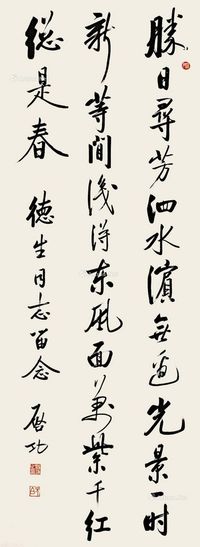 勝日尋芳泗水濱無邊光景一時
新等閒識得东风面萬紫千红
総是春 德生同志留念 啟功